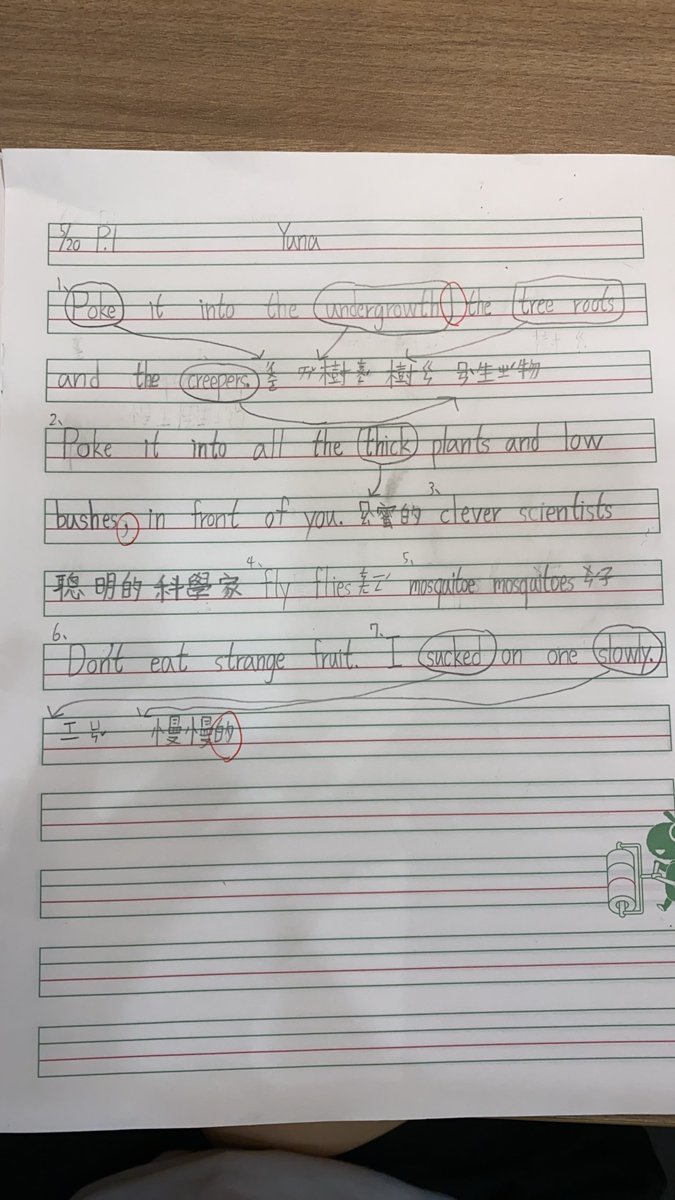 5/20 P.1 Yuna
1、Poke it into the undergrowth, the tree roots
and the creepers. 樹 樹 生 物
2、Poke it into all the thick plants and low
bushes, in front of you. 實的 3、clever scientists
聰明的 科學家 4、fly flies 5、mosquitoe mosquitoes 子
6、Don't eat strange fruit. 7、I sucked on one slowly.
慢慢的